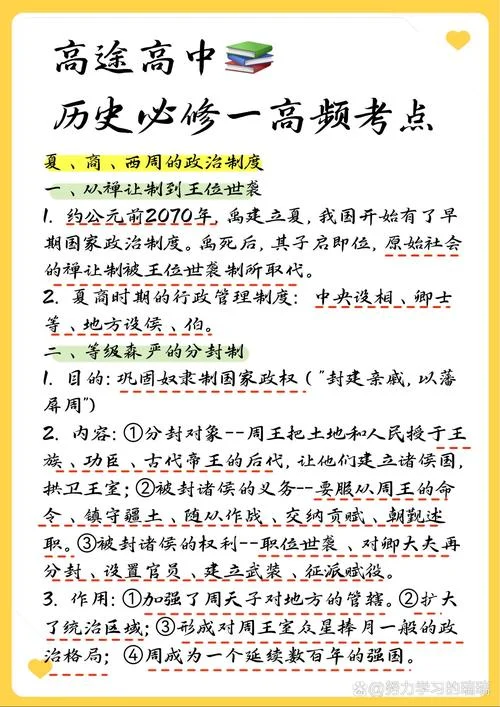 高途高中
历史必修一高频考点
夏、商、西周的政治制度
一、从禅让制到王位世袭
1. 约公元前2070年，禹建立夏，我国开始有了早
期国家政治制度。禹死后，其子启即位，原始社会
的禅让制被王位世袭制所取代。
2. 夏商时期的行政管理制度：中央设相、卿士
等、地方设侯、伯。
二、等级森严的分封制
1. 目的：巩固奴隶制国家政权（"封建亲戚，以藩
屏周"）
2. 内容：①分封对象--周王把土地和人民授于王
族、功臣、古代帝王的后代，让他们建立诸侯国，
拱卫王室；②被封诸侯的义务--要服从周王的命
令、镇守疆土、随从作战、交纳贡赋、朝觐述
职。③被封诸侯的权利--职位世袭、对卿大夫再
分封、设置官员、建立武装、征派赋役。
3. 作用：①加强了周天子对地方的管辖。②扩大
了统治区域；③形成对周王室众星捧月一般的政
治格局；④周成为一个延续数百年的强国。
@努力学习的喵喵